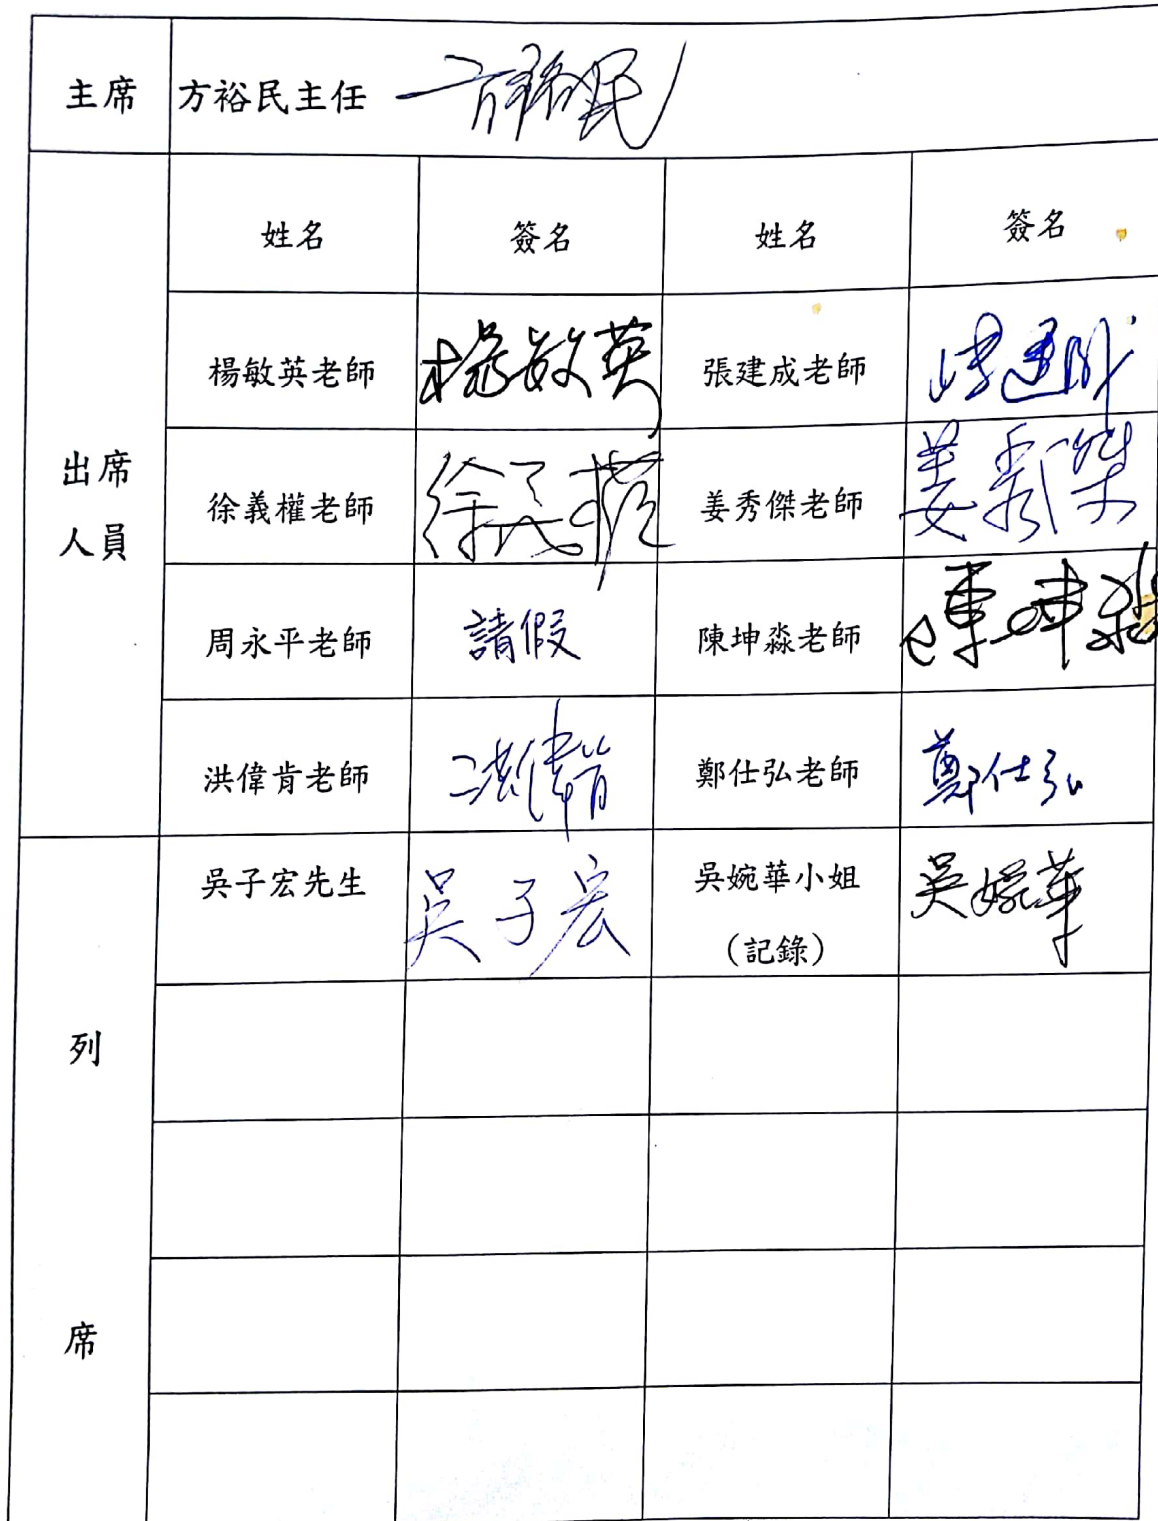 主席 方裕民主任 方裕民
姓名 簽名 姓名 簽名
楊敏英老師 楊敏英 張建成老師 張建成
出席
人員
徐義權老師 徐義權 姜秀傑老師 姜秀傑
周永平老師 請假 陳坤淼老師 陳坤淼
洪偉肯老師 洪偉肯 鄭仕弘老師 鄭仕弘
吳子宏先生 吳子宏 吳婉華小姐 吳婉華
（記錄）
列
席